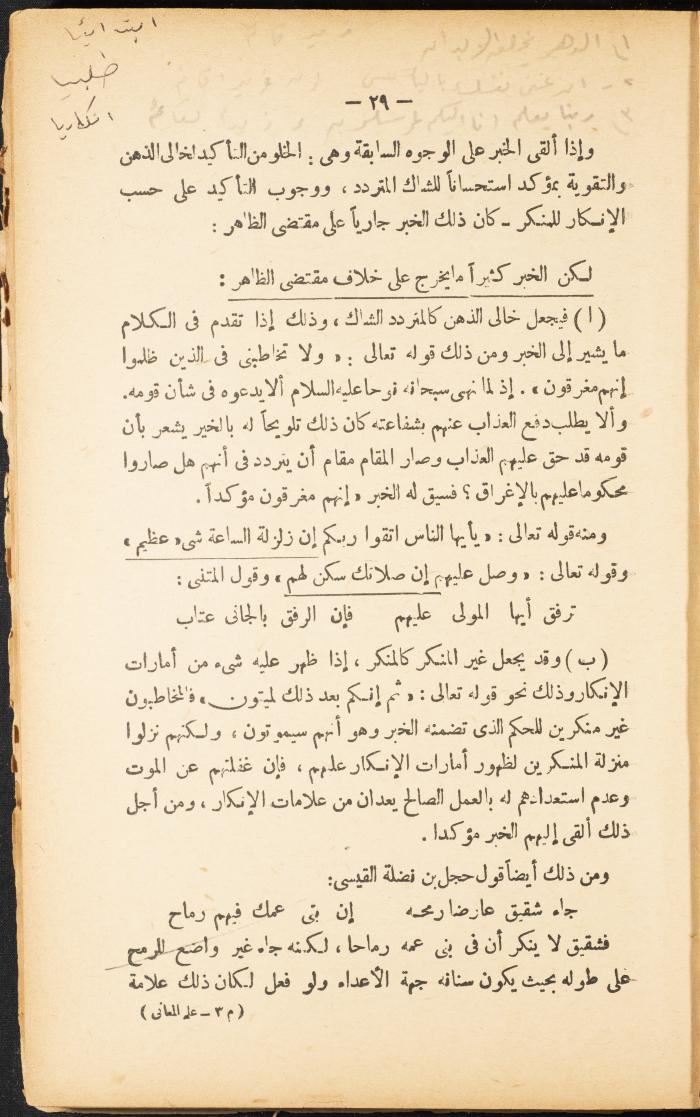 ابتدائيا
طلبيا
انكاريا
– ٢٩ –
وإذا ألقى الخبر على الوجوه السابقة وهى : الخلو من التأكيد لخالى الذهن
والتقوية بمؤكد استحساناً للشاك المتردد ، ووجوب التأكيد على حسب
الإنكار للمنكر – كان ذلك الخبر جارياً على مقتضى الظاهر :
لكن الخبر كثيراً ما يخرج على خلاف مقتضى الظاهر :
( ا ) فيجعل خالى الذهن كالمتردد الشاك ، وذلك إذا تقدم فى الكلام
ما يشير إلى الخبر ومن ذلك قوله تعالى : « ولا تخاطبنى فى الذين ظلموا
إنهم مغرقون » . إذ لما نهى سبحانه نوحا عليه السلام ألا يدعوه فى شأن قومه.
وألا يطلب دفع العذاب عنهم بشفاعته كان ذلك تلويحاً له بالخير يشعر بأن
قومه قد حق عليهم العذاب وصار المقام مقام أن يتردد فى أنهم هل صاروا
محكوما عليهم بالإغراق ؟ فسيق له الخبر « إنهم مغرقون مؤكداً .
ومنه قوله تعالى : « يأيها الناس اتقوا ربكم إن زلزلة الساعة شىء عظيم »
وقوله تعالى : « وصل عليهم إن صلاتك سكن لهم » وقول المتنبى :
ترفق أيها المولى عليهم فإن الرفق بالجانى عتاب
( ب ) وقد يجعل غير المنكر كالمنكر ، إذا ظهر عليه شىء من أمارات
الإنكار وذلك نحو قوله تعالى : « ثم إنكم بعد ذلك لميتون » فالمخاطبون
غير منكرين للحكم الذى تضمنه الخبر وهو أنهم سيموتون ، ولكنهم نزلوا
منزلة المنكرين لظهور أمارات الإنكار عليهم ، فإن غفلتهم عن الموت
وعدم استعدادهم له بالعمل الصالح يعدان من علامات الإنكار ، ومن أجل
ذلك ألقى إليهم الخبر مؤكدا .
ومن ذلك أيضاً قول حجل بن نضلة القيسى:
جاء شقيق عارضا رمحه إن بنى عمك فيهم رماح
فشقيق لا ينكر أن فى بنى عمه رماحا ، لكنه جاء غير واضع للرمح
على طوله بحيث يكون سنانه جهة الأعداء ولو فعل لكان ذلك علامة
( م ٣ – علم المعانى )